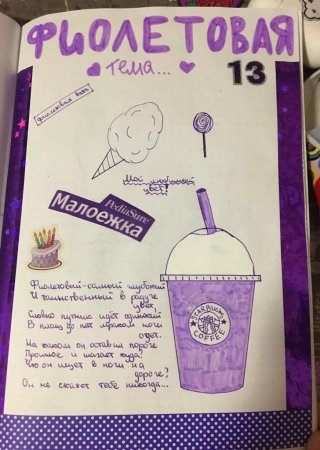 ФИОЛЕТОВАЯ
тема...
13
фиолетовая
Мой любимый
цвет!
PediaSure
Малоежка
Фиолетовый-самый глубокий
И таинственный в радуге
цвет.
Словно путник идёт одинокий
В плащ до пят мраком ночи
одет.
На каком он оставил пороге
Прошлое и шагает куда?
Что он ищет в ночи на
дороге?
Он не скажет тебе никогда...
STARBUCKS
COFFEE